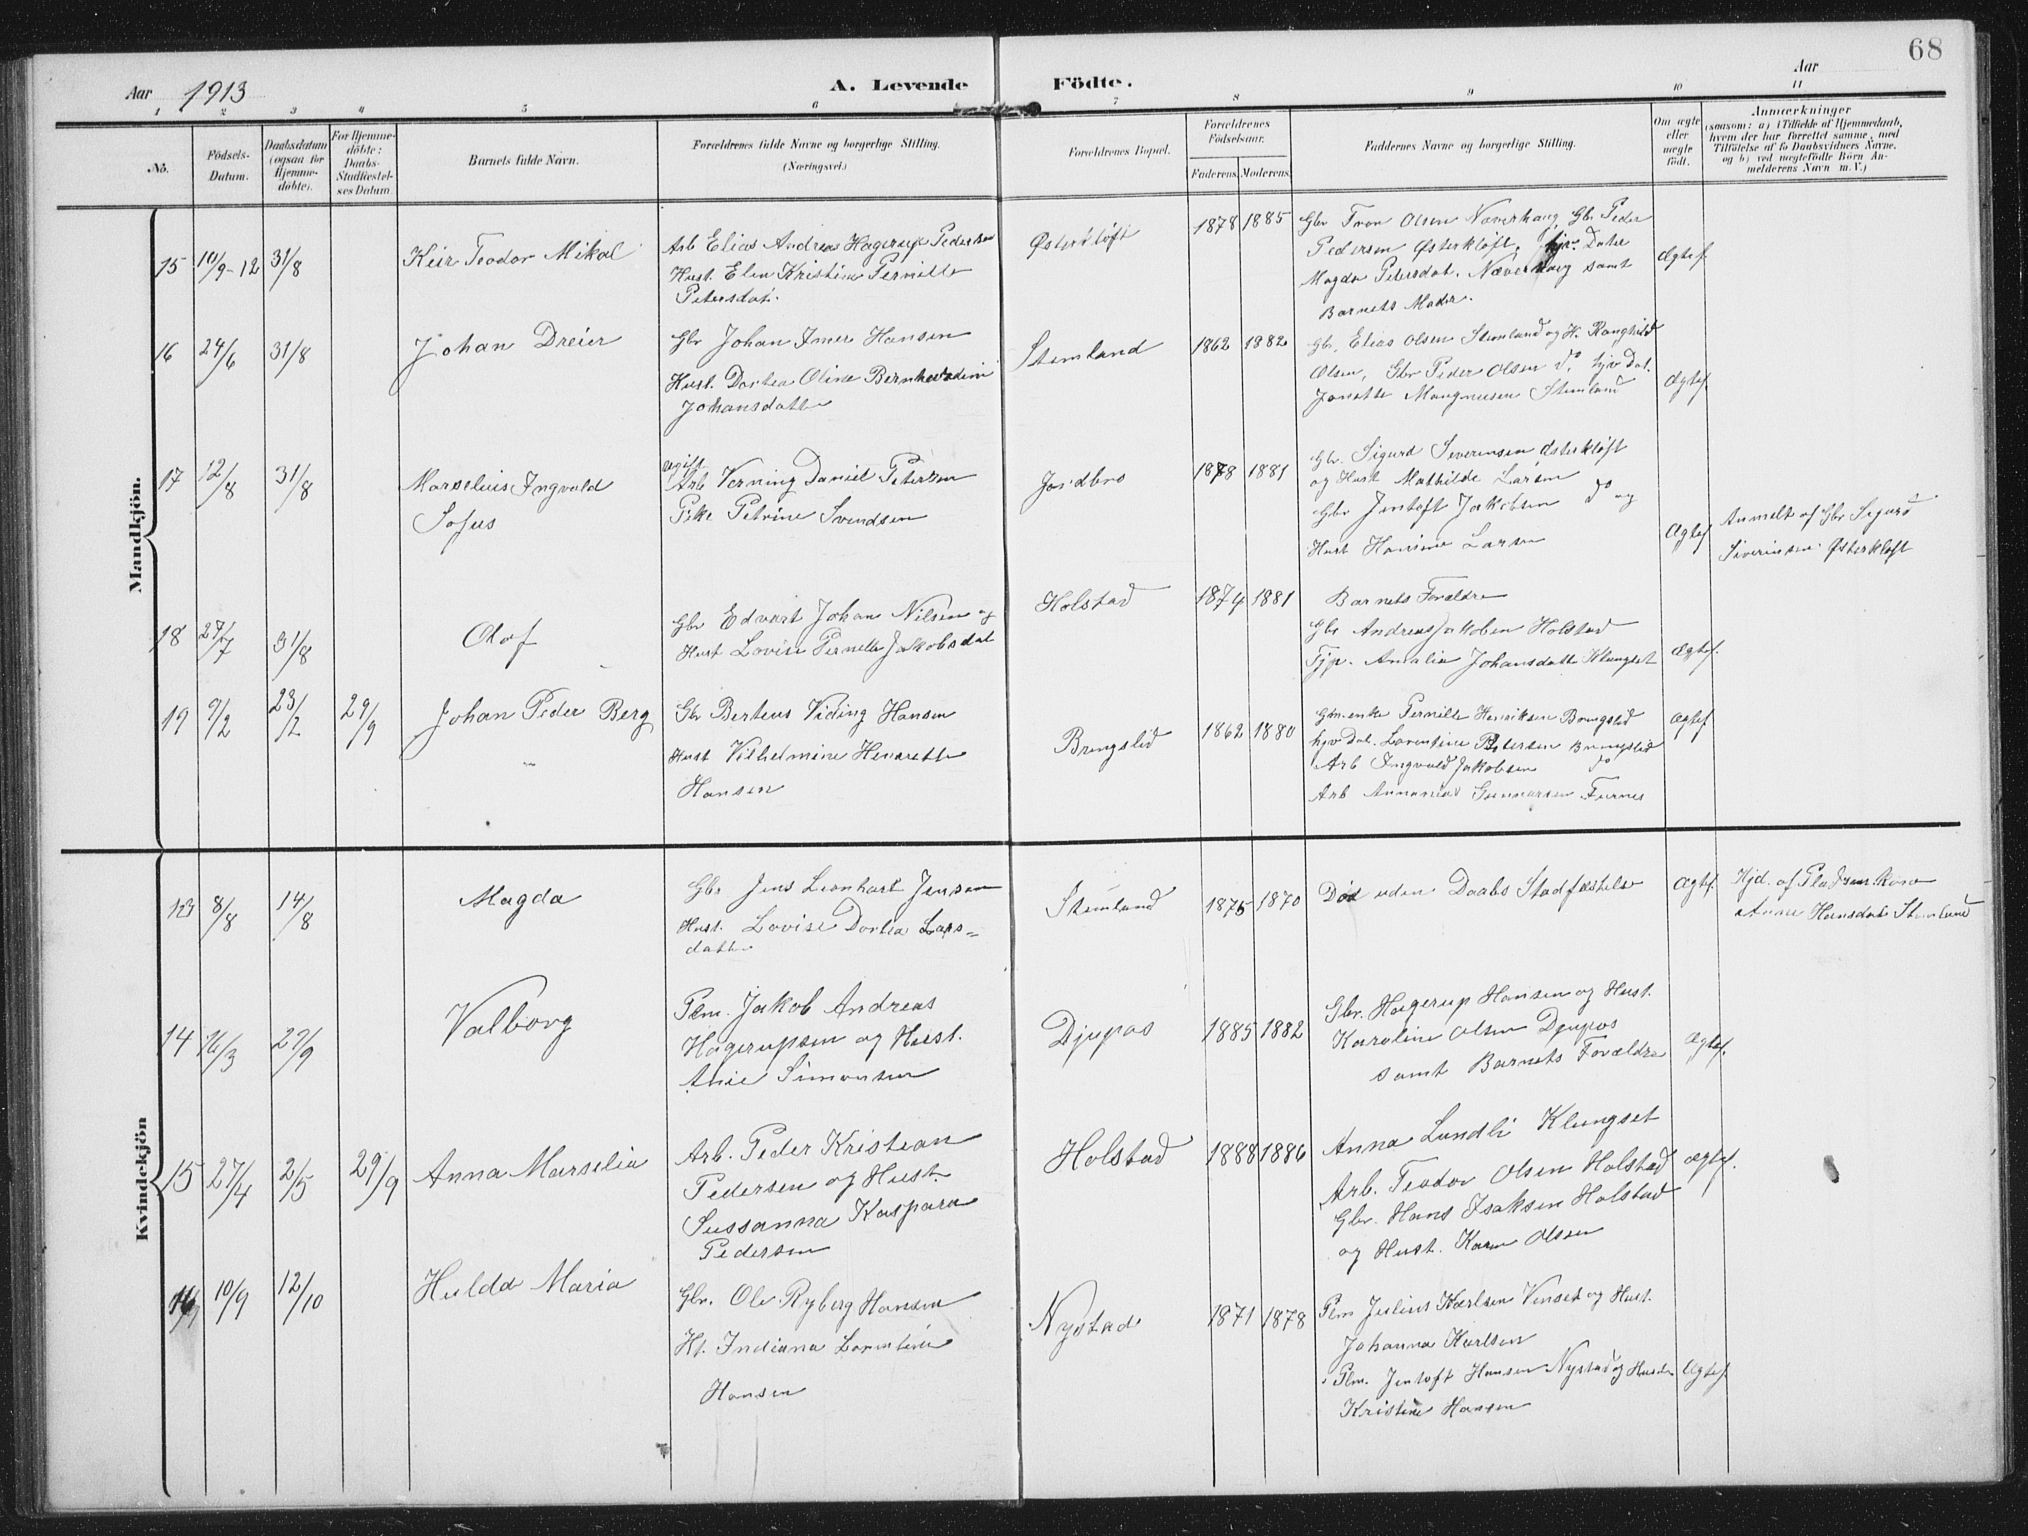 68
Aar 1913
A. Levende Födte.
Aar
1 2 3 4 5 6 7 8 9 10 11
No.
Födsels-Datum.
Daabsdatum (ogsaa for Hjemme-döbte).
For Hjemme-döbte: Daabs-Stadfæstel-ses Datum
Barnets fulde Navn.
Forældrenes fulde Navne og borgerlige Stilling. (Næringsvei.)
Forældrenes Bopæl.
Forældrenes Födselsaar.
Faderens. Moderens.
Faddernes Navne og borgerlige Stilling.
Om ægte eller uægte födt.
Anmærkninger
(saasom: a) i Tilfælde af Hjemmedaab, hvem der har forrettet samme, med Tilföielse af to Daabsvidners Navne, og b) ved uægtefödte Börn An-melderens Navn m. V.)
Mandkjön.
15 10/9-12 31/8
Teodor Mikal
Arb Elias Andreas Hagerup Pedersen
Hust. Elen Kristine Pernille
Petersdat.
Østerkløft
1878 1885
Gbr Tron Olsen Næverhaug, Gbr Peder
Pedersen Østerkløft,
Magda Petersdat. Næverhaug samt
Barnets Moder.
Ægtef
16 24/6 31/8
Johan Dreier
Gbr Johan Imer Hansen
Hust. Dortea Oline
Johansdatte
Stemland
1862 1882
Gbr. Elias Olsen Stemland og H. Ranghild
Olsen, Gbr Peder Olsen do, hjv Dat.
Jonette Mangnusen Stemland
Ægtef
17 12/8 31/8
Marselius Ingvald
Sofus
ugift
Arb Verning Daniel Petersen
Pike Petrine Svendsen
Jordbro
1878 1881
Gbr. Sigurd Severinsen Østerkløft
og Hust Mathilde Larsen
Gbr Jentoft Jakobsen do og
Hust Hansine Larsen
Ægtef
Anmelt af Gbr Sigurd
Siverinsen Østerkløft
18 27/7 31/8
Olof
Gbr Edvart Johan Nilsen og
Hust Lovise Pernelle Jakobsdat
Holstad
1874 1881
Barnets Foraldre
Gbr Andreas Jakobsen Holstad
Tjp. Amalia Johansdatte Klungset
Ægtef.
19 9/2 23/2 29/9
Johan Peder Berg
Gbr Berteus Viding Hansen
Hust Vilhelmine Henrette
Hansen
Bringslid
1862 1880
Gbr.enke Pernille Henriksen Bringslid
hjv Dat. Lorentine Petersen Bringslid
Arb Ingvald Jakobsen do
Arb Annanias Gunnarsen Furnes
Ægtef
Kvindekjön
13 8/8 14/8
Magda
Gbr Jens Leonhart Jensen
Hust. Lovise Dortea Lars-
datte
Stemland
1875 1870
Død uden Daabs Stadfæstelse
Ægtef.
Hjd. af
Anne Hansdat Stemland
14 16/3 29/9
Valborg
Plm. Jakob Andreas
Hagerupsen og Hust.
Anie Simonsen
Djupos
1885 1882
Gbr. Hagerup Hansen og Hust.
Karoline Olsen Djupos
samt Barnets Forældre
Ægtef.
15 27/4 2/5 29/9
Anna Marselia
Arb. Peder Kristian
Pedersen og Hust.
Sussanna Kaspara
Pedersen
Holstad
1888 1886
Anna Lundli Klungset
Arb. Teodor Olsen Holstad
Gbr. Hans Isaksen Holstad
og Hust. Karen Olsen
Ægtef.
16 10/9 12/10
Hulda Maria
Gbr. Ole Ryberg Hansen
Ht. Indiana Lorentine
Hansen
Nystad
1871 1878
Plm Julius Karlsen Venset og Hust.
Johanna Karlsen
Plm. Jentoft Hansen Nystad og
Kristine Hansen
Ægtef.